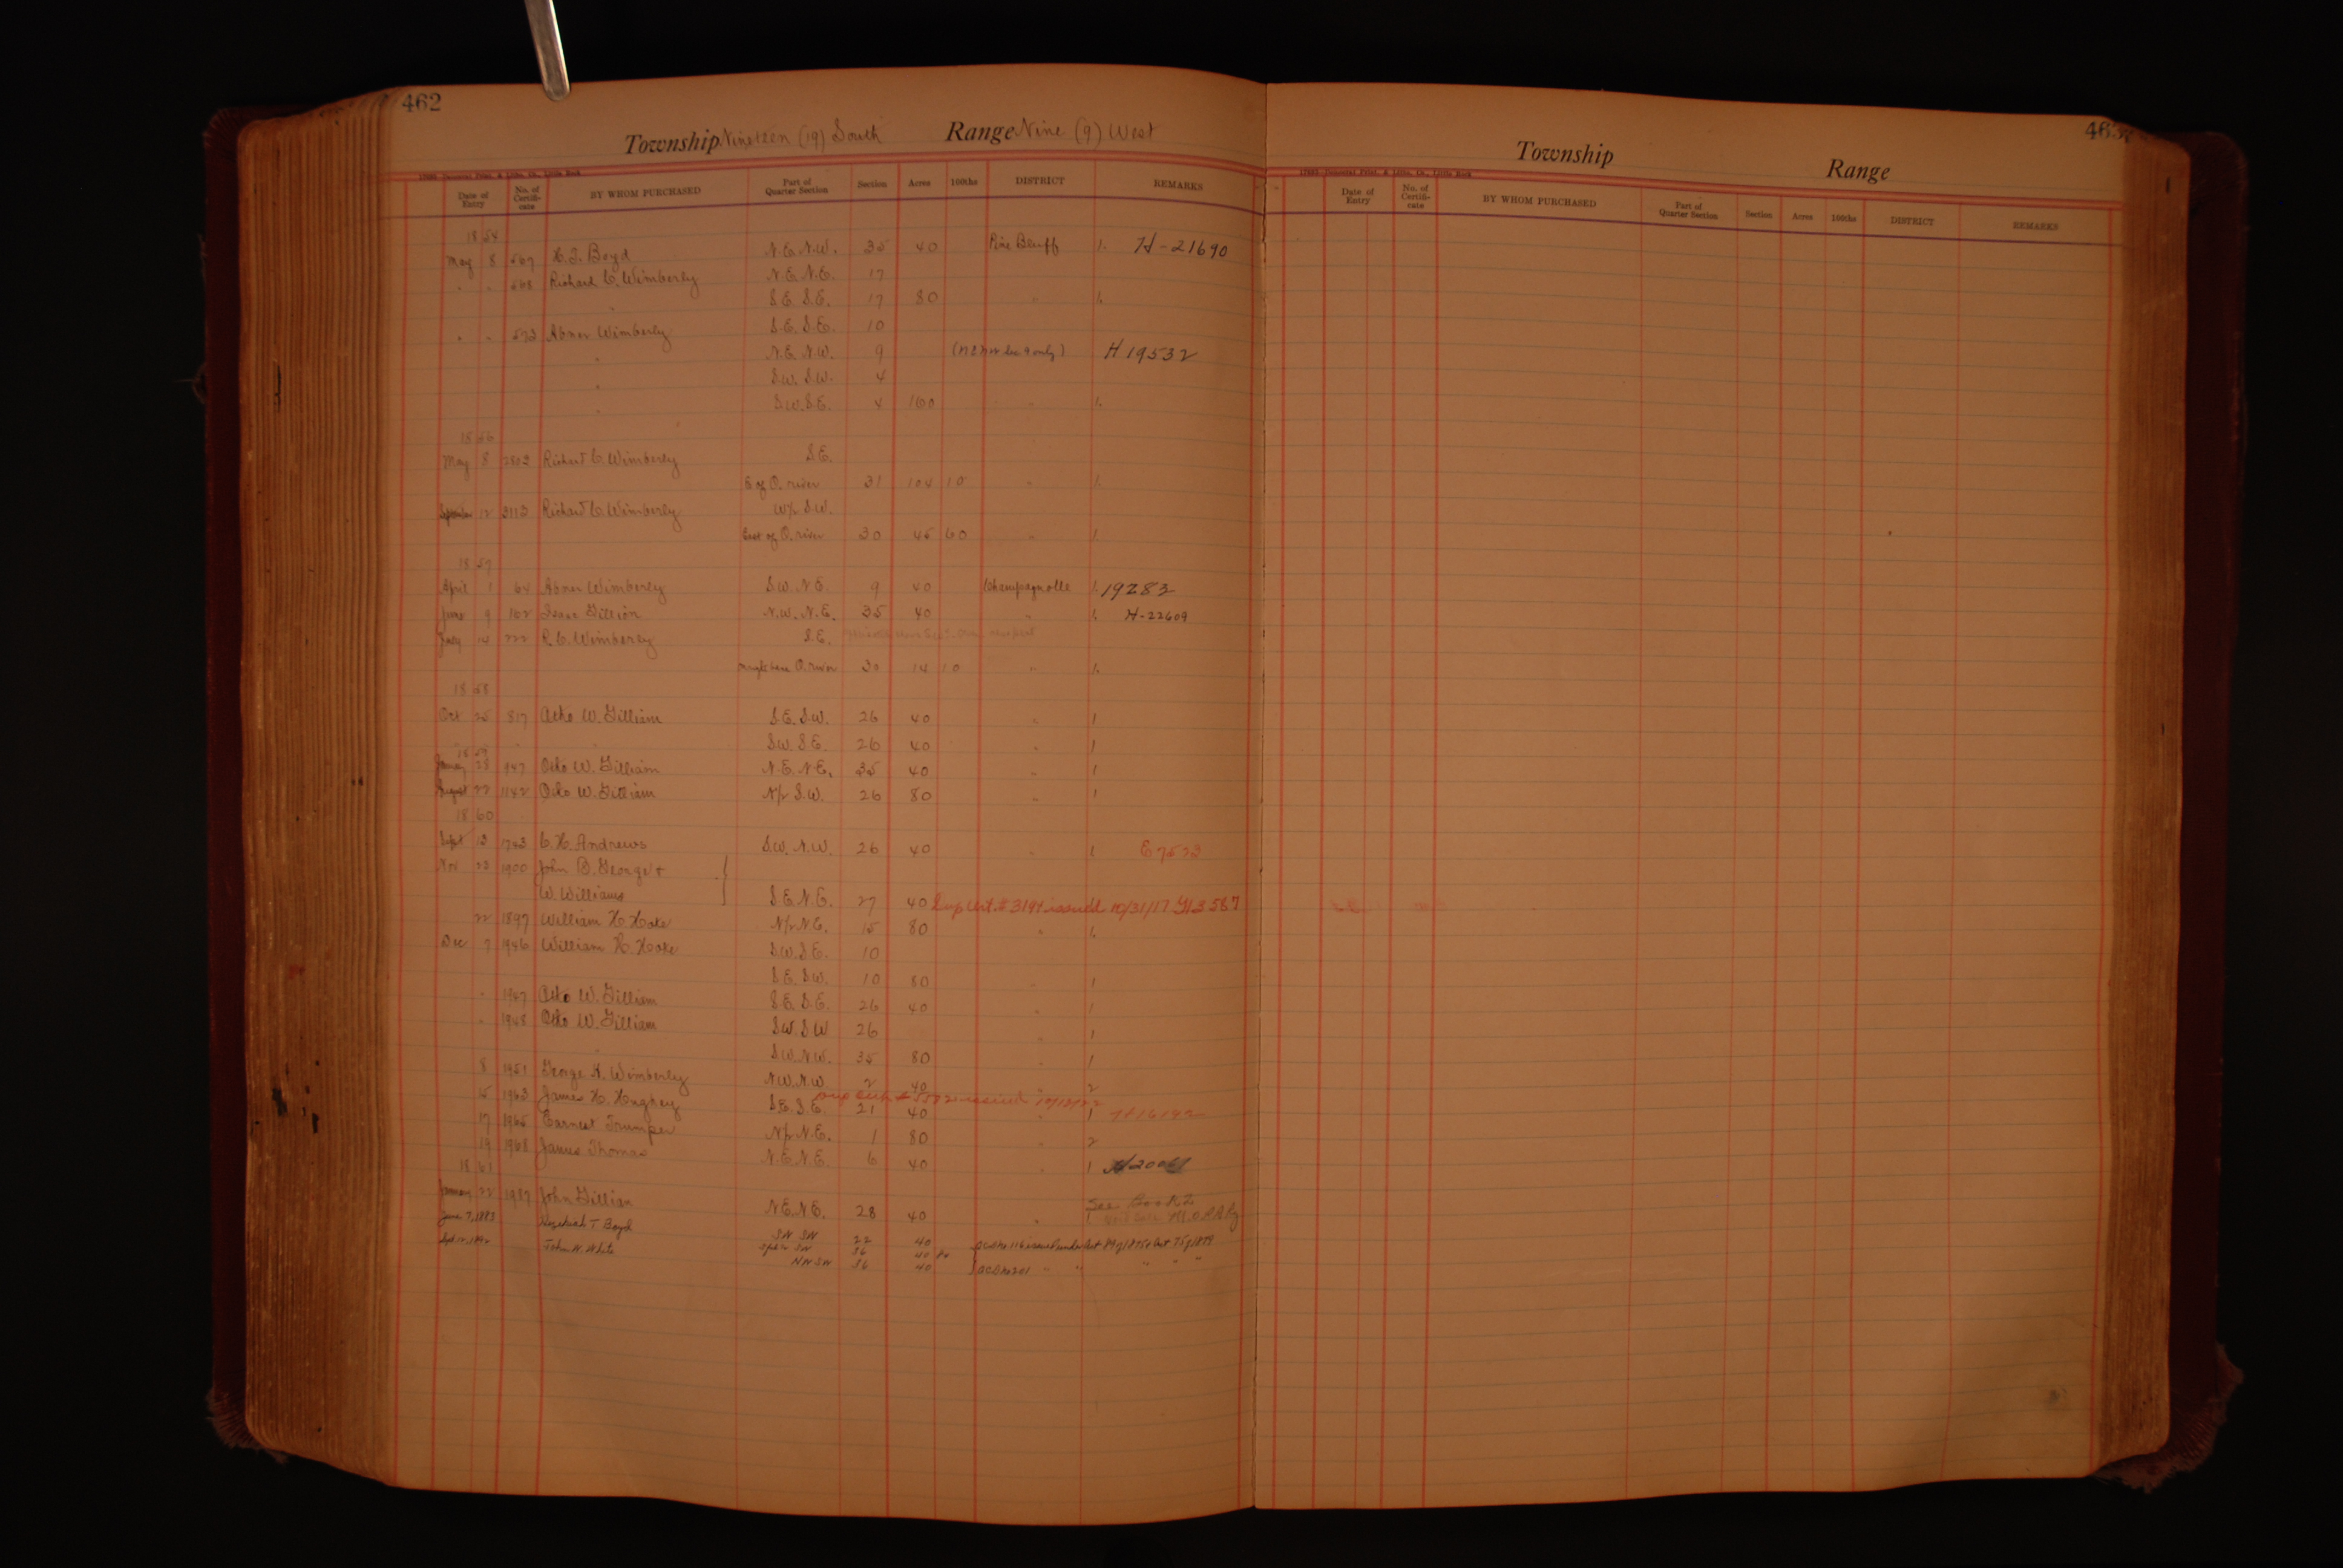 462
Township Nineteen (19) South Range Nine (9) West
Date of Entry No. of Certifi-cate BY WHOM PURCHASED Part of Quarter Section Section Acres 100ths DISTRICT REMARKS
1854
May 8 567 H. T. Boyd N.E. N.W. 35 40 Pine Bluff 1. H-21690
" " 568 Richard C. Wimberly N.E. N.E. 17
" S.E. S.E. 17 80 " 1.
" " 573 Abner Wimberly S.E. S.E. 10
" N.E. N.W. 9 H 19532
" S.W. S.W. 4
" S.W. S.E. 4 160 " 1.
1856
May 8 2802 Richard C. Wimberly S.E.
E of O. river 31 104 10 " 1.
September 12 3113 Richard C. Wimberly W/2 S.W.
East of O. river 30 45 60 " 1
1857
April 1 64 Abner Wimberly S.W. N.E. 9 40 Champagnolle 1. 19283
June 9 102 Isaac Gillion N.W. N.E. 35 40 " 1. H-22609
14 222 R. C. Wimberly S.E.
O. river 30 14 10 " 1.
1858
Oct 25 817 Otho W. Gilliam S.E. S.W. 26 40 " 1
" " S.W. S.E. 26 40 " 1
1859
January 28 947 Otho W. Gilliam N.E. N.E. 35 40 " 1
August 22 1142 Otho W. Gilliam N/2 S.W. 26 80 " 1
1860
Sept 13 1743 C. H. Andrews S.W. N.W. 26 40 " 1 E 7573
Nov 22 1900 John B. George +
W. Williams S.E. N.E. 27 40 Dup Cert. # 3194 issued 10/31/17 G13587
22 1897 William H. Hoke N/2 N.E. 15 80 " 1.
Dec 7 1946 William H. Hoke S.W. S.E. 10
S.E. S.W. 10 80 " 1
" 1947 Otho W. Gilliam S.E. S.E. 26 40 " 1
" 1948 Otho W. Gilliam S.W. S.W 26 " 1
" S.W. N.W. 35 80 " 1
8 1951 George H. Wimberly N.W. N.W. 2 40 " 2
issued 10/12/22
15 1963 James H. Hughey S.E. S.E. 21 40 " 1
17 1965 Earnest Trumper N/2 N.E. 1 80 " 2
19 1968 James Thomas N.E. N.E. 6 40 " 1
1861
January 22 1987 John Gillian N.E. N.E. 28 40 " 1 See
June 7, 1883 Hezekiah T. Boyd SW SW 22 40
Sept 12, 1892 John W. White SW 36 40
NW SW 36 40
463
Township Range
Date of Entry No. of Certifi-cate BY WHOM PURCHASED Part of Quarter Section Section Acres 100ths DISTRICT REMARKS